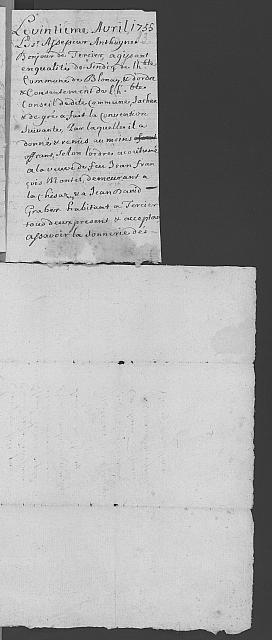 Le vintieme Avril 1755
Le Sr. Assesseur Anthoyne
Bonjour de Tercier, agissant
en qualité de Sindic de l'h.ble
Commune de Blonay, & d'ordre
& Consentement du h.ble
Conseil de dite commune, Sachant
& de gré a fait la Convention
Suivante, Par laquelle il a
donné & remis au moins
offrant, Selon l'ordre accoutumé
a la veuve de feu Jean Fran
çois Montet, demeurant a
la Chésaz, & a Jean David
Graber habitant a Tercier
tous deux present & acceptant
assavoir la Sonnerie des